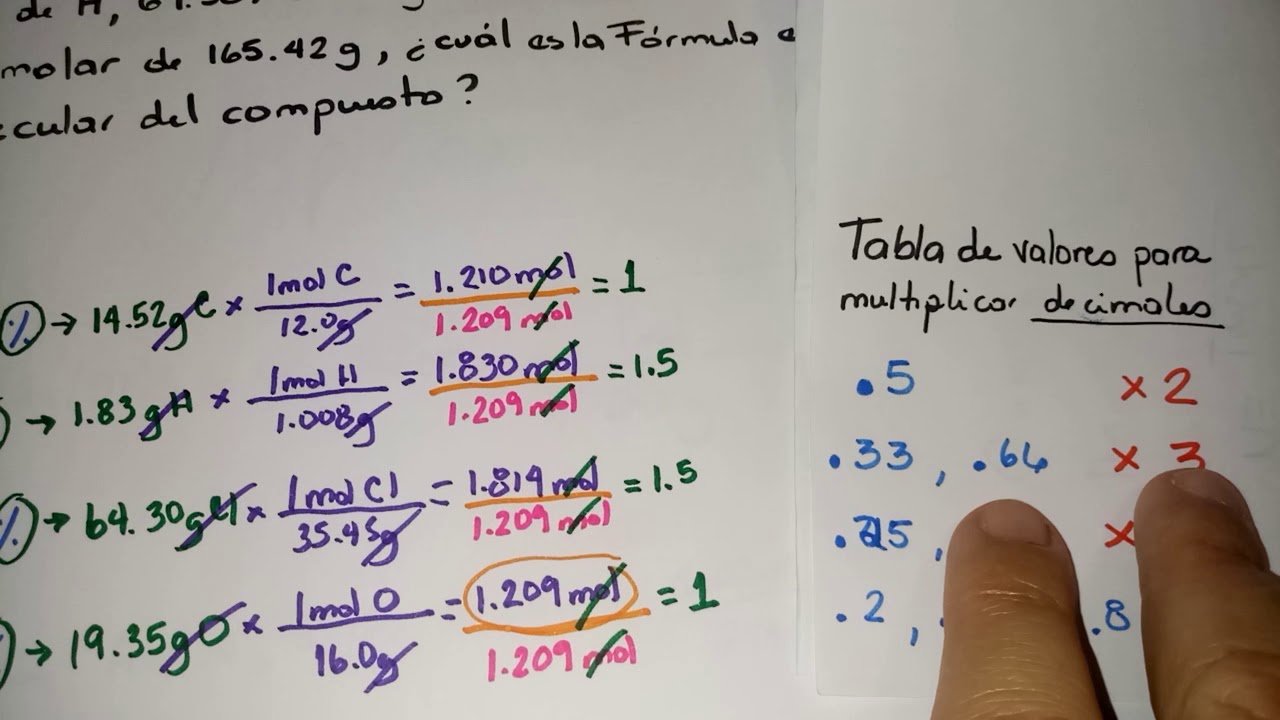 de H,
molar de 165.42g, ¿cuál es la Fórmula e
cular del compuesto?
%) → 14.52gC × 1mol C / 12.0g = 1.210 mol / 1.209 mol = 1
→ 1.83gH × 1mol H / 1.008g = 1.830 mol / 1.209 mol = 1.5
%) → 64.30gCl × 1mol Cl / 35.45g = 1.814 mol / 1.209 mol = 1.5
→ 19.35gO × 1mol O / 16.0g = 1.209 mol / 1.209 mol = 1
Tabla de valores para
multiplicar decimales
.5 × 2
.33, .66 × 3
.25, ×
.2, .8